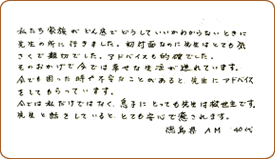 私たち家族がどん底でどうしていいかわからないときに
先生の所に行きました。初対面なのに先生はとても気
さくで親切でした。アドバイスも的確でした。
そのおかげで今では幸せな生活が送れています。
今でも困った時や不安なことがあると先生にアドバイス
をしてもらっています。
今では私だけではなく、息子にとっても先生は救世主です。
先生と話をしていると、とても安心で癒されます。
徳島県 AM 40代